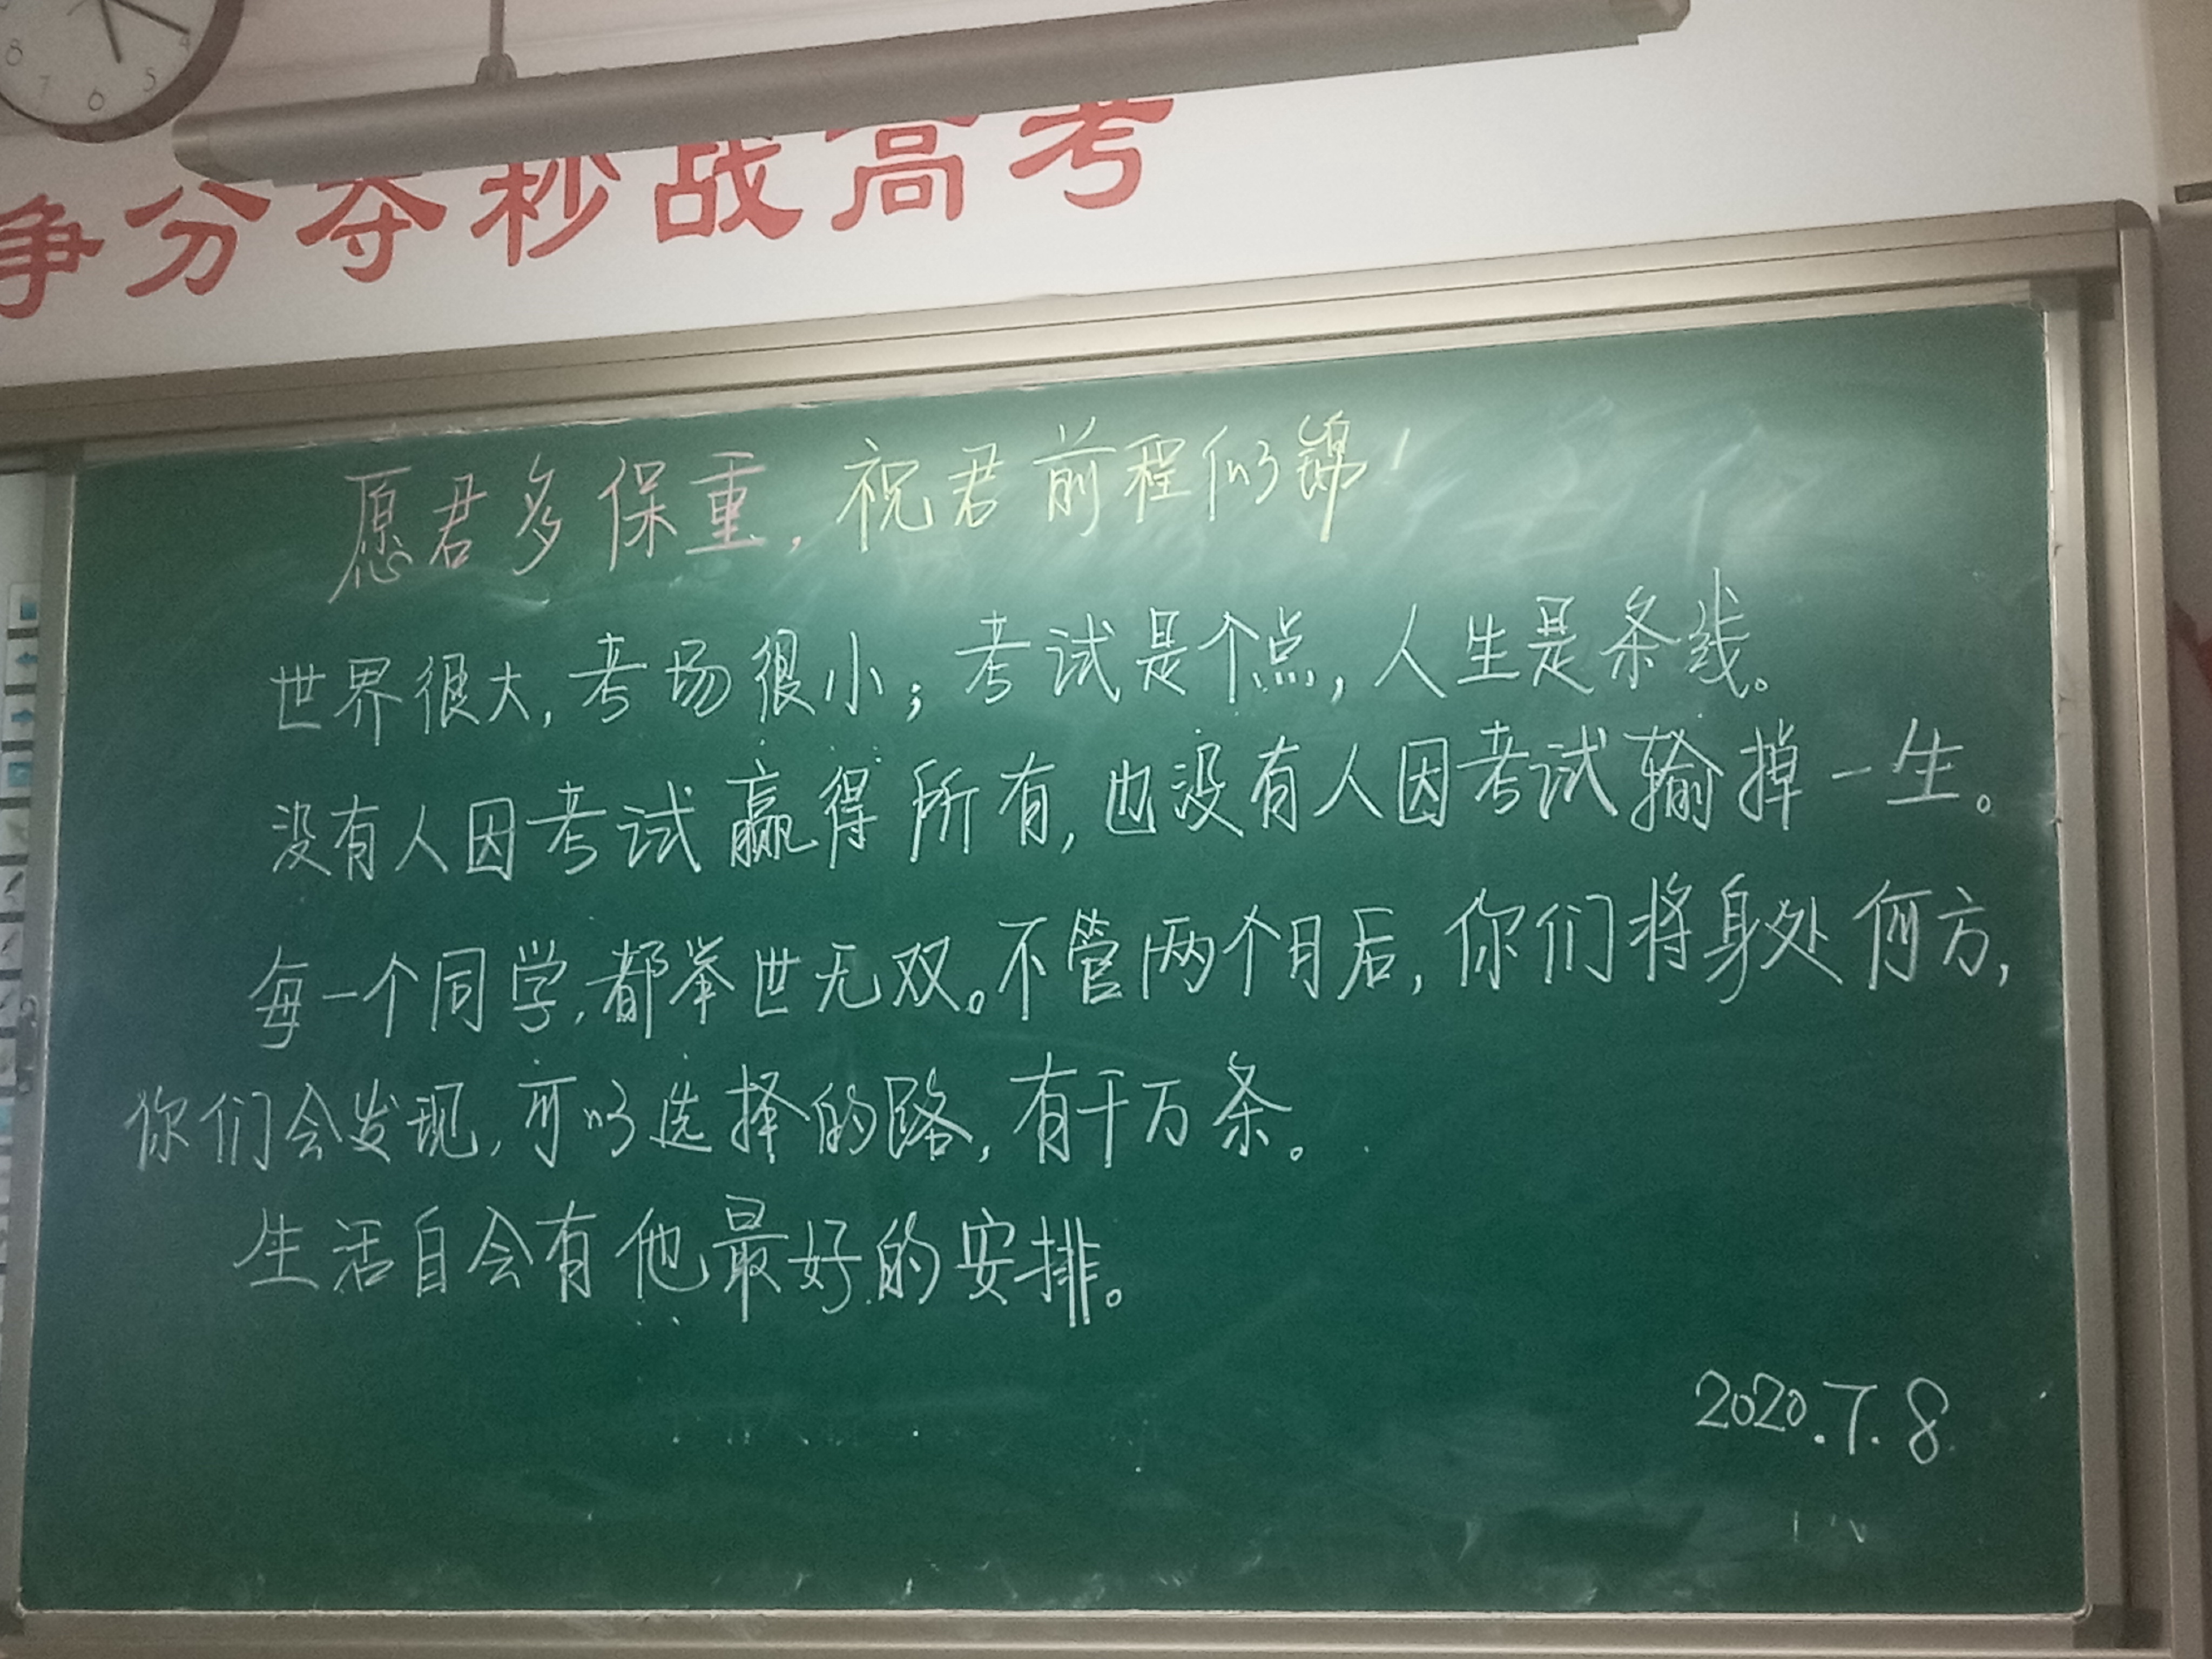 8 7 6 5 4
争分夺秒战高考
愿君多保重，祝君前程似锦！
世界很大，考场很小；考试是个点，人生是条线。
没有人因考试赢得所有，也没有人因考试输掉一生。
每一个同学，都举世无双。不管两个月后，你们将身处何方，
你们会发现，可以选择的路，有千万条。
生活自会有他最好的安排。
2020.7.8